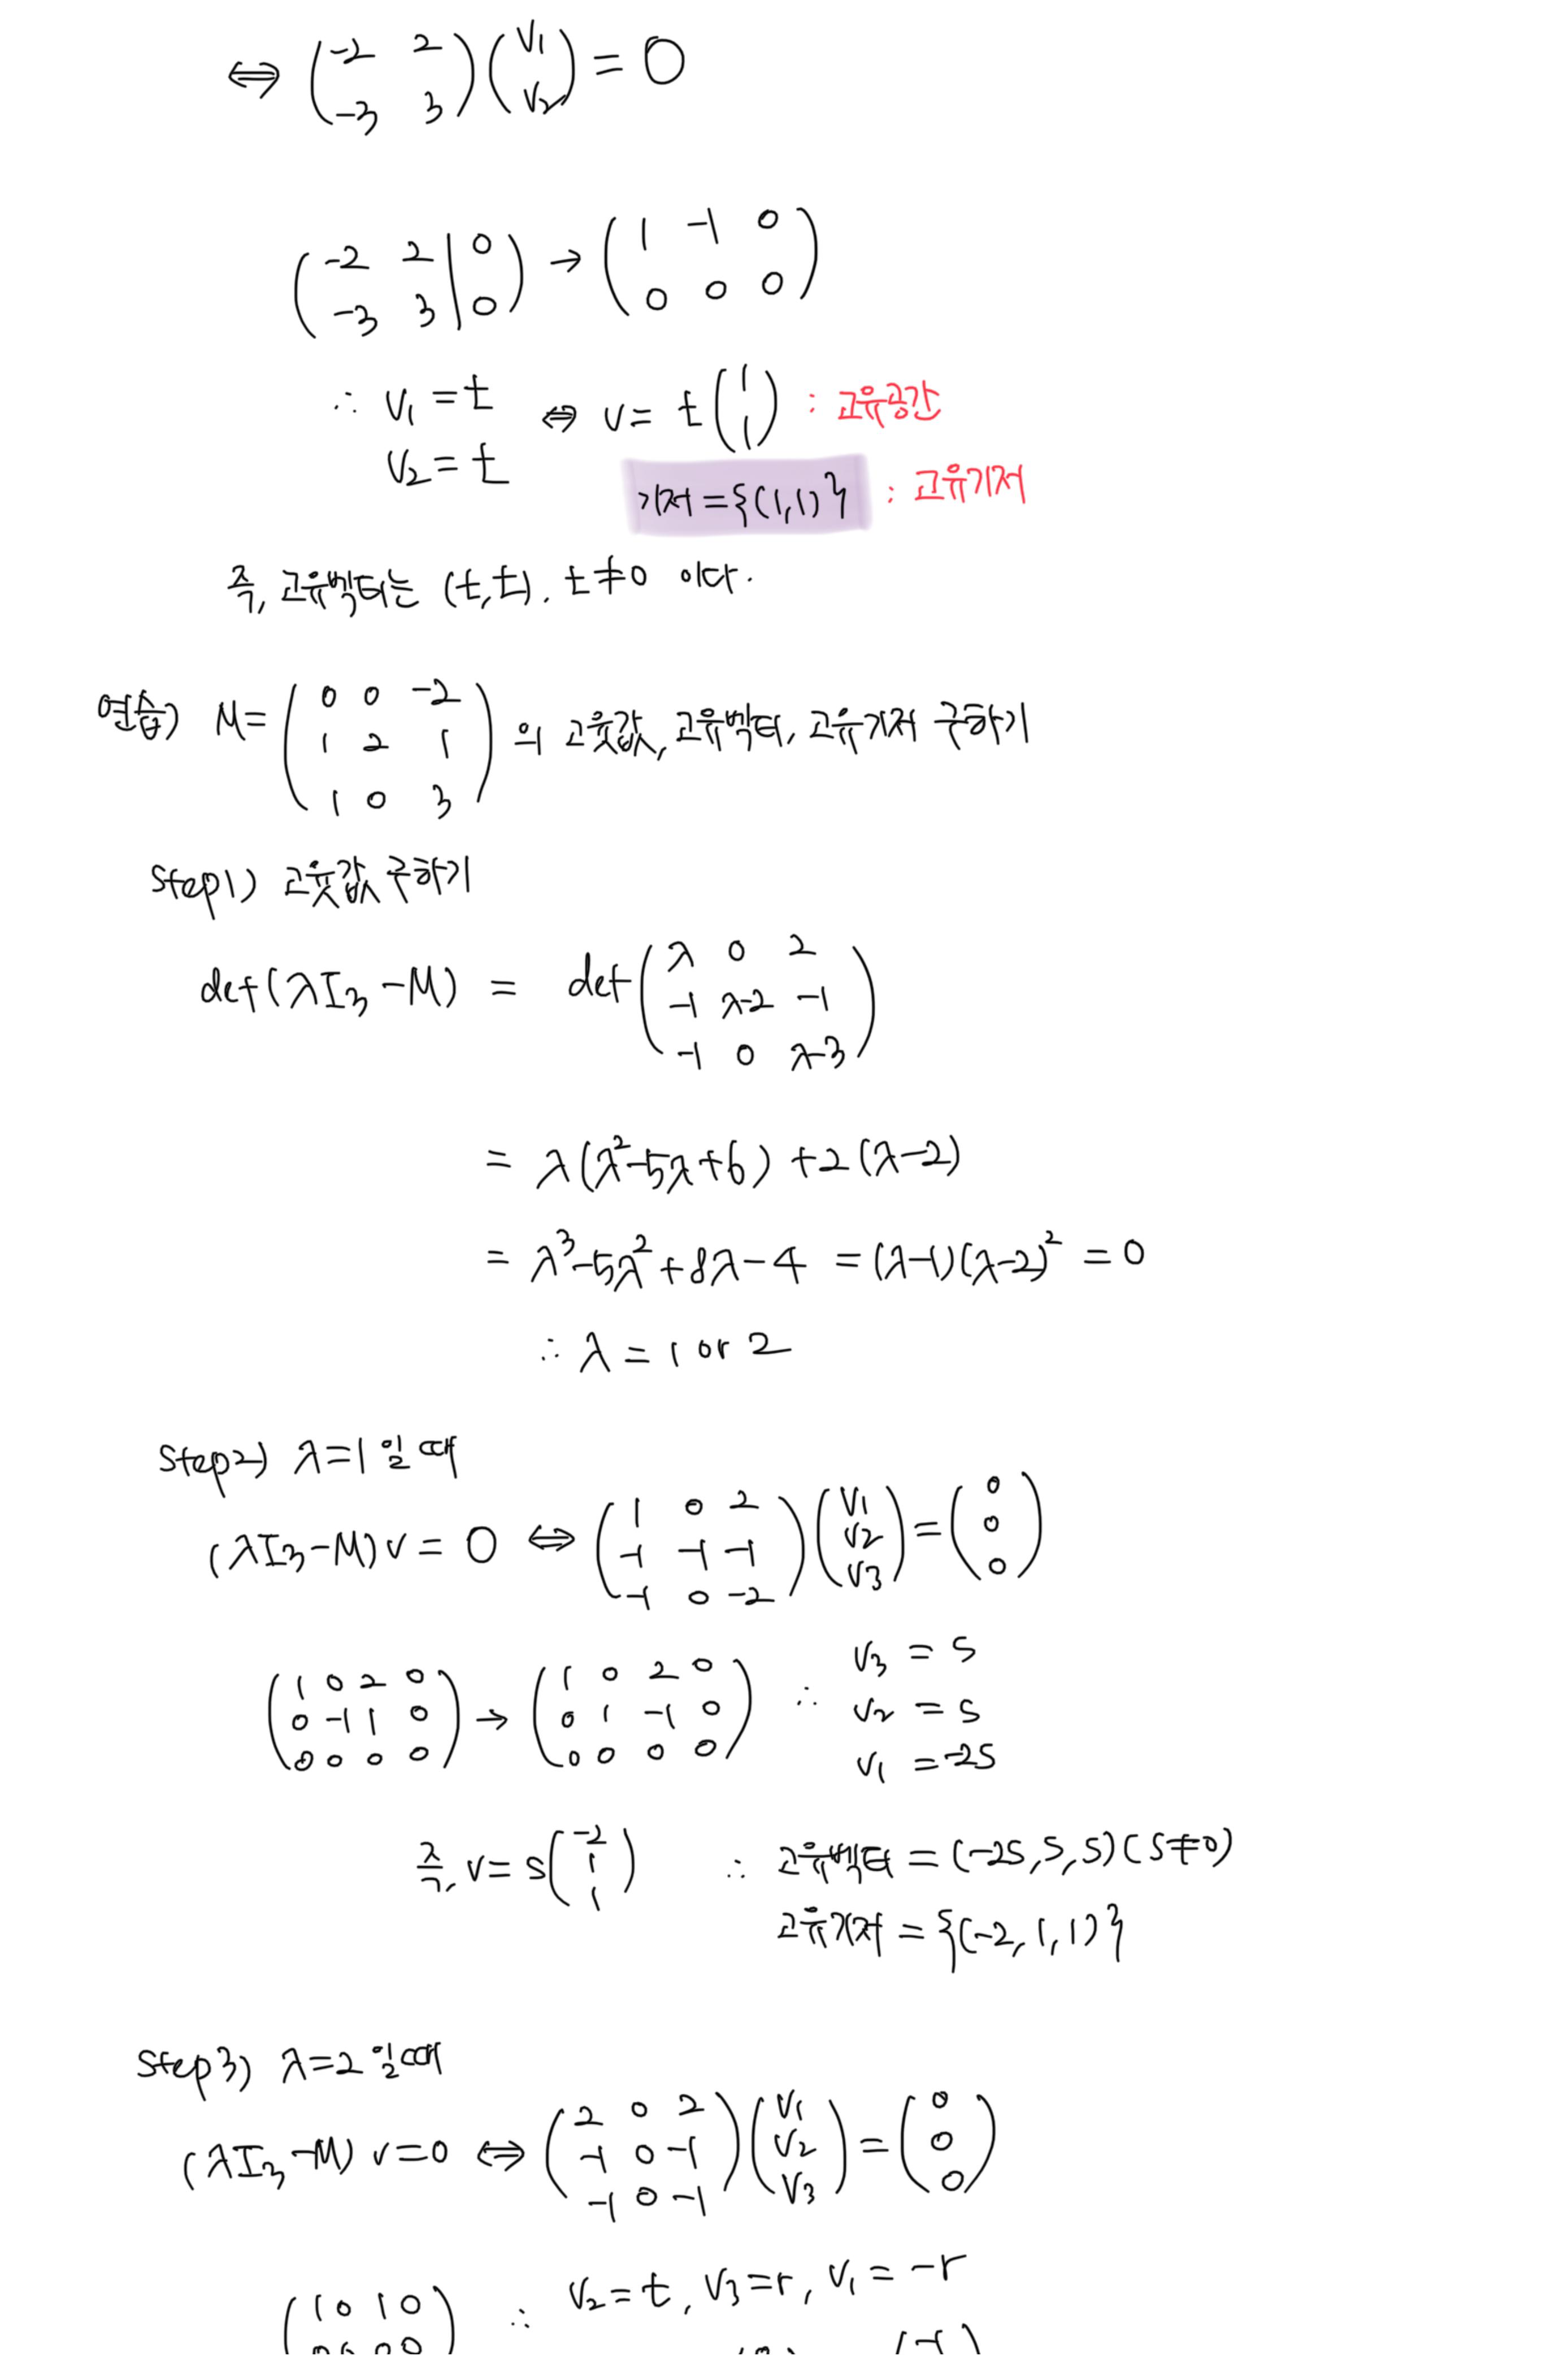 ⇔ (-2 2
-3 3) (v₁
v₂) = 0
(-2 2 | 0
-3 3 | 0) → (1 -1 0
0 0 0)
∴ v₁ = t ⇔ v = t(1
1) : 고유공간
v₂ = t
기저 = {(1,1)} : 고유기저
즉, 고유벡터는 (t,t), t≠0 이다.
연습) M = (0 0 -2
1 2 1
1 0 3) 의 고윳값, 고유벡터, 고유기저 구하기
Step1) 고윳값 구하기
det(λI₃-M) = det(λ 0 2
-1 λ-2 -1
-1 0 λ-3)
= λ(λ²-5λ+6) +2(λ-2)
= λ³-5λ²+8λ-4 = (λ-1)(λ-2)² = 0
∴ λ = 1 or 2
Step2) λ=1 일 때
(λI₃-M)v = 0 ⇔ (1 0 2
-1 -1 -1
-1 0 -2) (v₁
v₂
v₃) = (0
0
0)
(1 0 2 0
0 -1 1 0
0 0 0 0) → (1 0 2 0
0 1 -1 0
0 0 0 0) ∴ v₃ = s
v₂ = s
v₁ = -2s
즉, v = s(-2
1
1) ∴ 고유벡터 = (-2s, s, s) (s≠0)
고유기저 = {(-2, 1, 1)}
Step3) λ=2 일 때
(λI₃-M) v=0 ⇔ (2 0 2
-1 0 -1
-1 0 -1) (v₁
v₂
v₃) = (0
0
0)
(1 0 1 0 ∴ v₂=t, v₃=r, v₁=-r